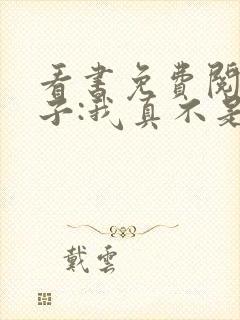 看書免費閱
子:我真不是
戴雲